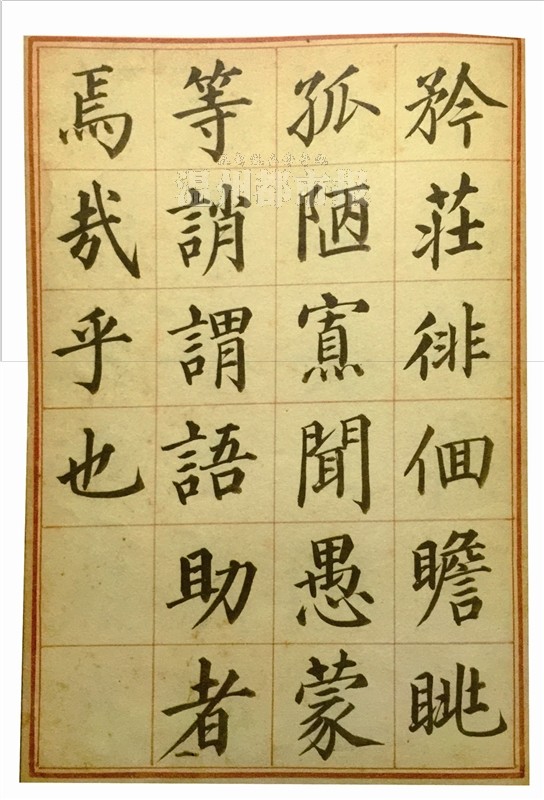 矜莊徘佪瞻眺
孤陋寡聞愚蒙
等誚謂語助者
焉哉乎也
温州都市报